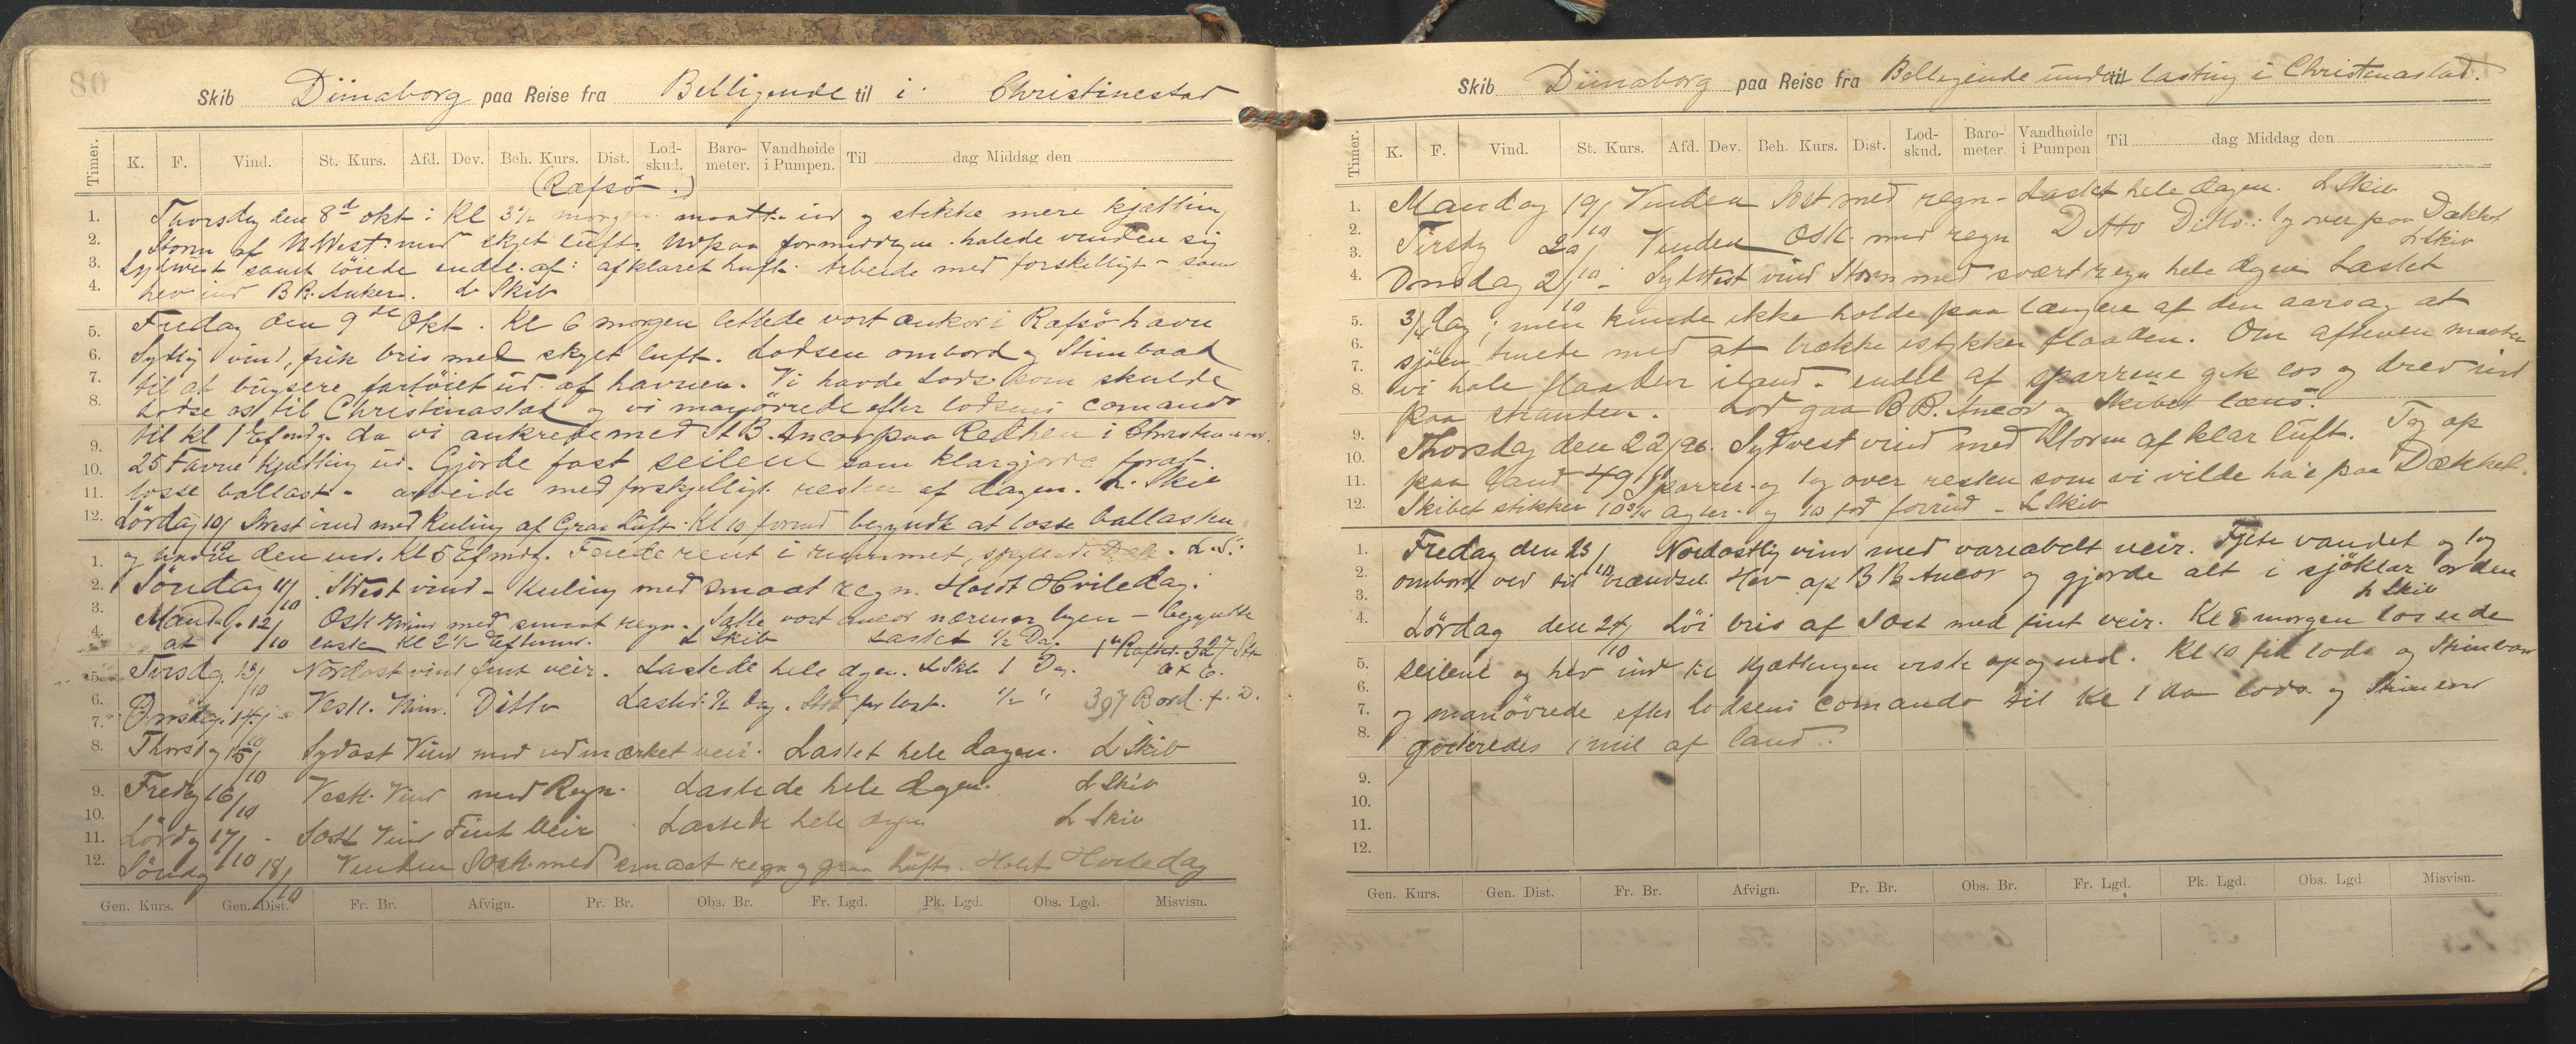 80
Skib Dünaborg paa Reise fra Belligende til i Christinestad
Timer. K. F. Vind. St. Kurs. Afd. Dev. Beh. Kurs. Dist. Lod-skud. Baro-meter. Vandhøide i Pumpen. Til dag Middag den
(Rafsö.)
1. Thorsdag den 8d okt: Kl 3½ morgen maatte ud og stikke mere kjætting
2. Storm af NWest: med skyet luft. Udpaa formiddagen halede vinden sig
3. Sydwest samt löiede endel af: afklaret luft: Arbeide med forskelligt - som
4. hev ind BB. Anker. L Skib
5. Fredag den 9de Okt. Kl 6 morgen lettede vort anker i Rafsö havn
6. Sydlig vind, frisk bris med skyet luft. Lodsen ombord og Stimbaad
7. til at bugsere fartöiet ud af havnen. Vi havde Lods som skulde
8. Lodse os til Christinastad og vi manövrede efter lodsens comando
9. til kl 1 Efmdg. da vi ankrede med St B. Ancor paa Redhen i Christen
10. 25 Favne Kjætting ud. Gjorde fast seilene som klargjorde forat
11. losse ballast - arbeide med forskjelligt resten af dagen. L. Skib
12. Lördag 10/10 Swest vind med Kuling af Graa Luft. Kl 10 formd begyndte at losse ballasten
1. og endte den ud. Kl 5 Efmdg. Feiede rent i rummet, spylede Dæk. L.S.
2. Söndag 11/10 SWest vind - Kuling med smaat regn. Holdt Hviledag.
3. Mandag. 12/10 Ostl. Wind med smaat regn. Satte vort ancor nærmere byen - begyndte
4. at laste kl 2½ Eftermd. L Skib Lastet ½ Dag. 327 Stk
5. Tirsdag. 13/10 Nordost vind fint veir. Lastede hele dagen. L Skib 1 Dag.
6. Onsdag. 14/10 Vestl. Vind. Ditto Lastet ½ Dag. ½ " 397 Bord.
8. Thorsdag 15/10 Sydost Vind med udmærket veir. Lastet hele dagen. L Skib
9. Fredag 16/10 Vestl. Vind med Regn. Lastede hele dagen. L Skib
11. Lördag 17/10 - SOstl Vind Fint Veir Lastede hele dagen L Skib
12. Söndag 18/10 Vinden SOstl. med smaat regn og graa luft. Holdt Hviledag
Gen. Kurs. Gen. Dist. Fr. Br. Afvign. Pr. Br. Obs. Br. Fr. Lgd. Pk. Lgd. Obs. Lgd. Misvisn.
Skib Dünaborg paa Reise fra Belligende under til lasting i Christenastad.
Timer. K. F. Vind. St. Kurs. Afd. Dev. Beh. Kurs. Dist. Lod-skud. Baro-meter. Vandhøide i Pumpen Til dag Middag den
1. Mandag 19/10 Vinden Sost med regn - Lastet hele dagen. L Skib
2. Tirsdag 20/10 Vinden Ostl. med regn Ditto Ditto: tog over paa Dækket
3. L Skib
4. Onsdag 21/10 - Sydwest vind Storm med svært regn hele dagen Lastet
5. 3/4 dag; men kunde ikke holde paa længere af den aarsag at
6. sjöen truede med at brække istykker flaaden. Om aftenen maatte
7. vi hale flaaden iland - endel af sparrene gik los og drev ind
8. paa stranden. Lod gaa BB. Ancor og Skibet læns.
9. Thorsdag den 22/96. Sydvest vind med Storm af klar luft. Tog op
10. paa land 49 sparrer. og tog over resten som vi vilde ha'e paa Dækket.
12. Skibet stikker 10¾ agter. og 10 fod forrud - L Skib
1. Fredag den 23/10 Nordostlig vind med variabelt veir. Fyldte vandet og tog
2. ombord ved til brændsel Hev op BB Ancor og gjorde alt i sjöklar orden
3. L Skib
4. Lördag den 24/10 Löi bris af Sost med fint veir. Kl 8 morgen lossede
5. seilene og hev ind til Kjættingen viste op og ned. Kl 10 fik lods og Stimbaad
7. og manövrede efter lodsens comando til Kl 1 da lods og Stimbaad
8. 1 mil af land.
9.
10.
11.
12.
Gen. Kurs. Gen. Dist. Fr. Br. Afvign. Pr. Br. Obs. Br. Fr. Lgd. Pk. Lgd. Obs. Lgd Misvisn.